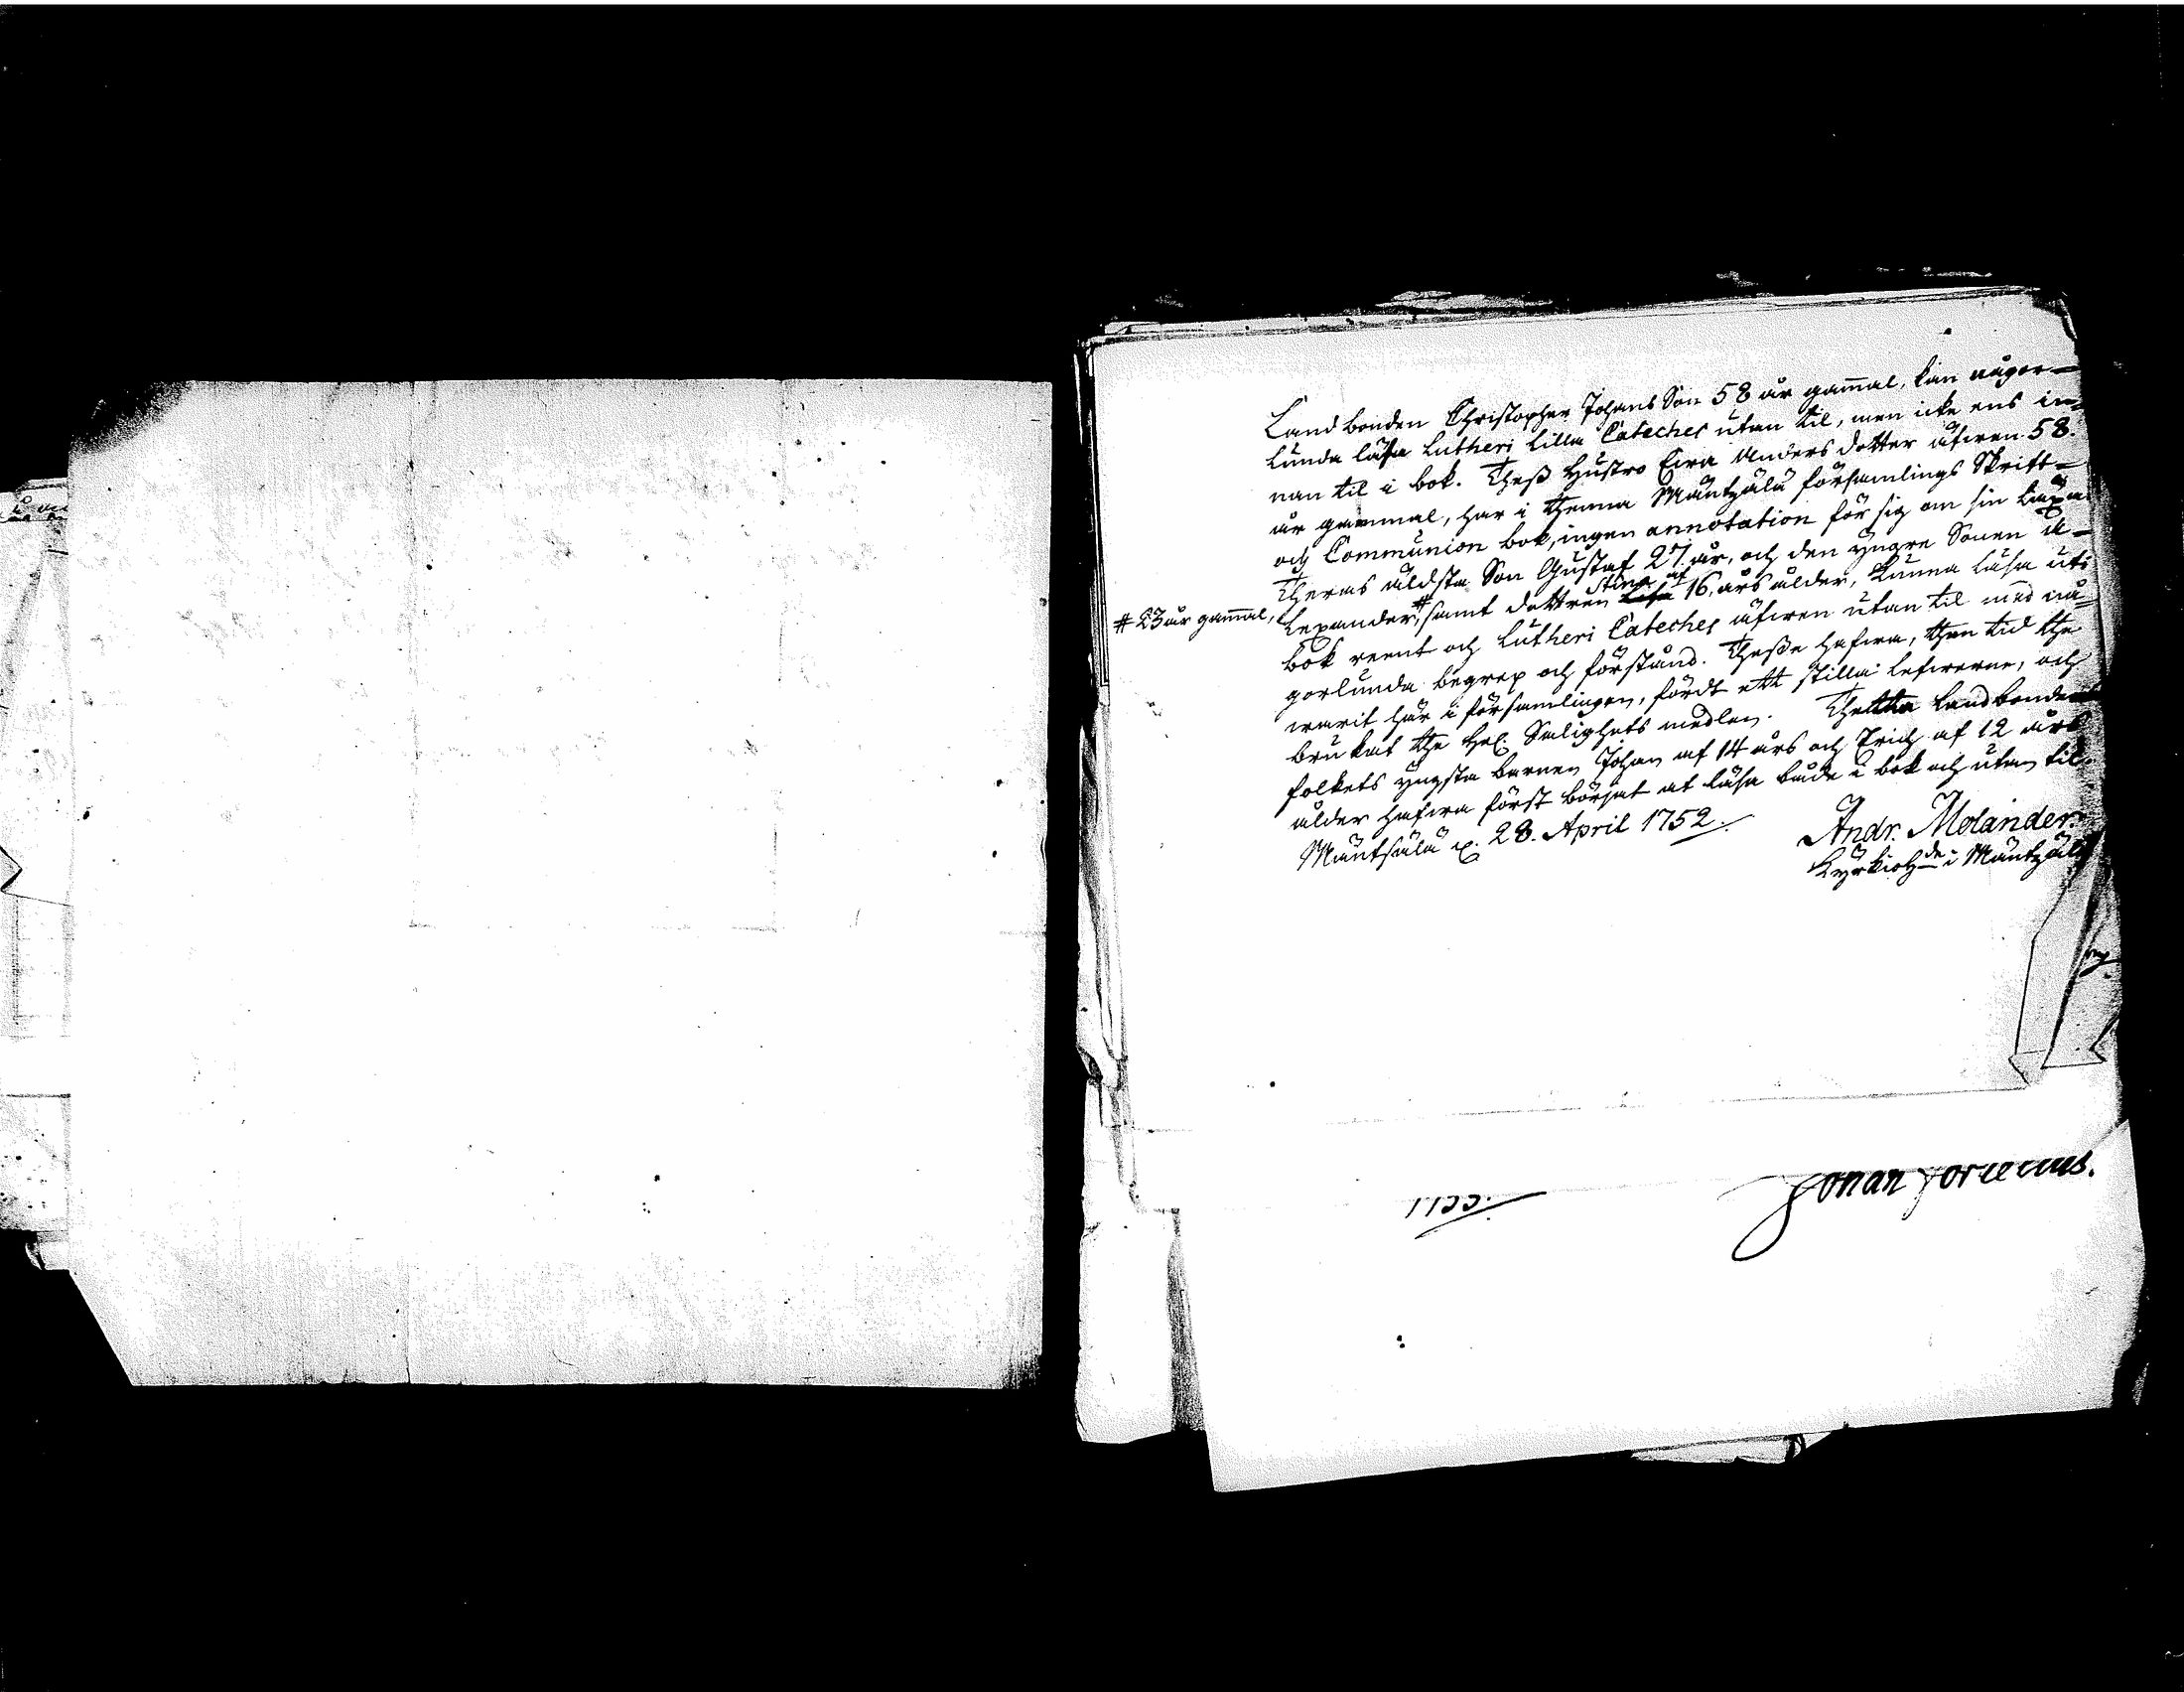 Landbonden Christopher Johans Son 58 år gam̄al, kan någor-
lunda läsa Lutheri Lilla Cateches utan til, men icke ens in-
nan til i bok. Thess Hustro Eva Anders dotter äfwen 58.
år gammal, har i thenna Mäntzälä församlings Skrift-
och Communion bok, ingen annotation för sig om sin läxa.
Theras äldsta Son Gustaf 27. år, och den yngre Sonen A-
# 23 år gam̄al, lexander,# samt dottren Stina af 16. års ålder, kunna läsa uti
bok reent och Lutheri Cateches äfwen utan til med nå-
gorlunda begrep och förstånd. Thesse hafwa, then tid the
warit här i församlingen, fördt ett stilla lefwerne, och
brukat the Hel. Salighets medlen. Thetta Landbonde
folkets yngsta barnen Johan af 14 års och Erich af 12 års
ålder hafwa först börjat at läsa både i bok och utan til.
Mäntsälä p. 28. April 1752.
Andr. Molander.
Kyrkioh:de i Mäntzälä